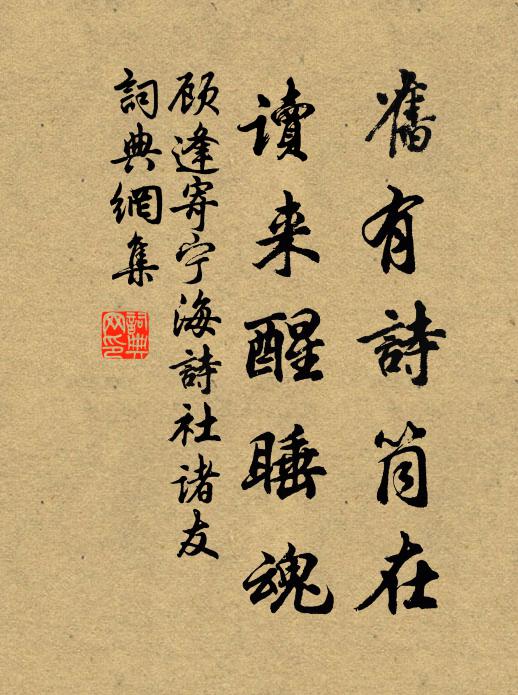 舊有詩筒在
讀来醒睡魂
顾逢寄宁海詩社诸友
詞典網集
詞典网印